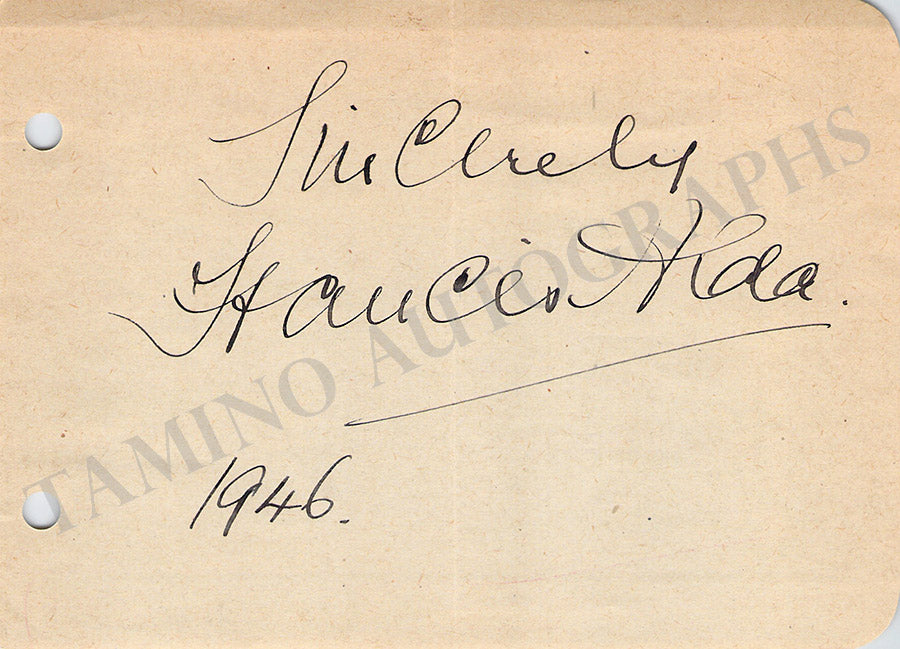 Sincerely
Frances Alda.
1946.
TAMINO AUTOGRAPHS